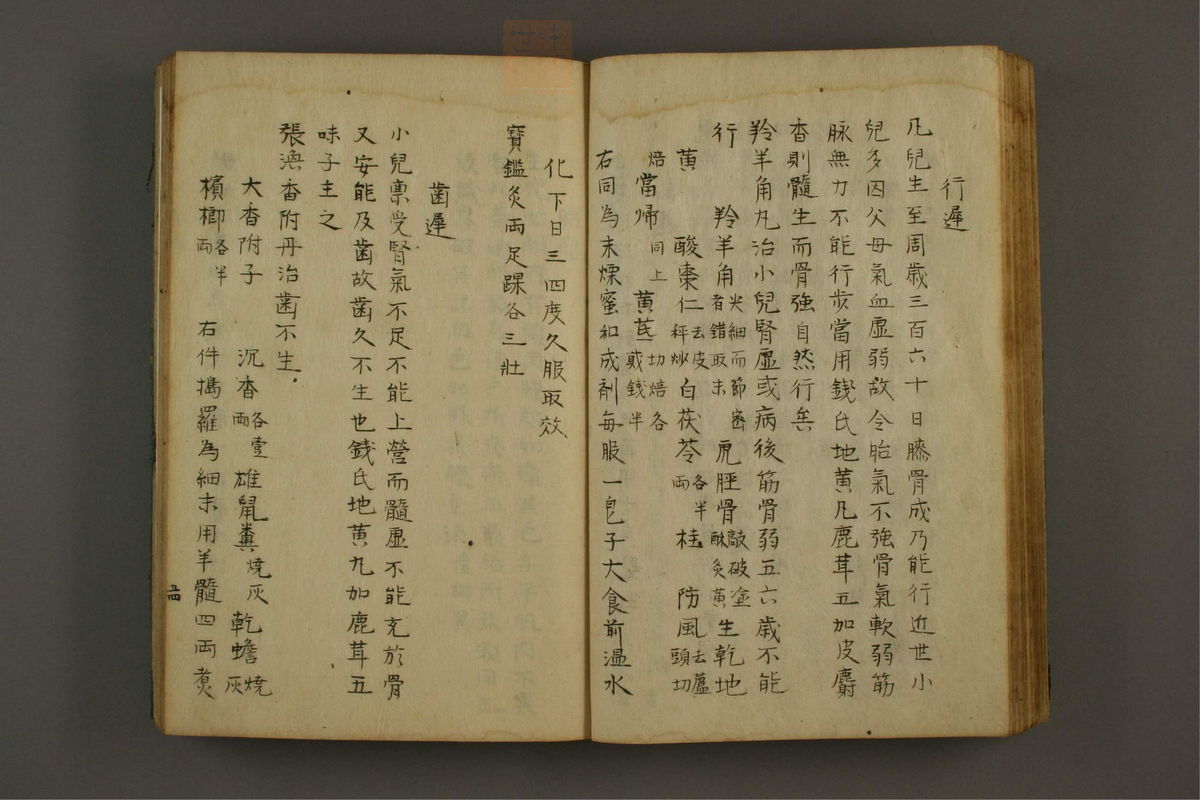 行遲
凡兒生至周歲三百六十日膝骨成乃能行近世小
兒多因父母氣血虛弱故令胎氣不強骨氣軟弱筋
脉無力不能行步當用錢氏地黄凡鹿茸五加皮麝
香則髓生而骨強自然行矣
羚羊角丸治小兒腎虛或病後筋骨弱五六歲不能
行 羚羊角尖細而節密者錯取末 虎脛骨敲破塗酥灸黄生乾地
黄 酸棗仁去皮秤炒白茯苓各半両 桂 防風去蘆頭切
焙當帰同上 黄芪切焙各貳錢半
右同為末煉蜜和成剤每服一皂子大食前温水
化下日三四度久服取效
寶鑑灸両足踝各三壯
齒遲
小兒禀受腎氣不足不能上營而髓虛不能充於骨
又安能及齒故齒久不生也錢氏地黄丸加鹿茸五
味子主之
張渙香附丹治齒不生
大香附子 沉香各壹両雄鼠糞燒灰乾蟾燒灰
檳榔各半両 右件擣羅為細末用羊髓四両煑
五四